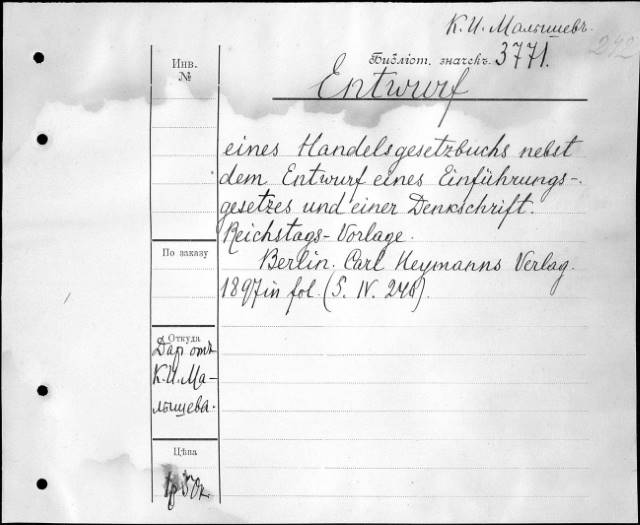 К. И. Малышевъ.
Библіот. значекъ. 3771.
242
Инв.
№
Entwurf
eines Handelsgesetzbuchs nebst
dem Entwurf eines Einführungs-
gesetzes und einer Denkschrift.
Reichstags-Vorlage.
Berlin. Carl Heymanns Verlag.
1897 in fol. (S. IV. 248).
По заказу
Откуда
Дар отъ
К. И. Ма-
лышева.
Цѣна
1р 50к